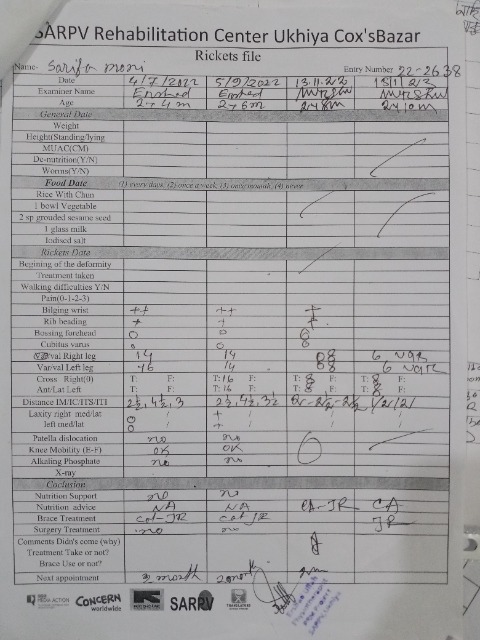 SARPV Rehabilitation Center Ukhiya Cox'sBazar
Rickets file
Name- Sarifa Entry Number 22-2638
Date 4/7/2022 5/9/2022 13.11.22
Examiner Name Ershad Ershad
Age 2y 4m 2y 6m 2y 8m 2y 10m
General Date
Weight
Height(Standing/lying
MUAC(CM)
De-nutrition(Y/N)
Worms(Y/N)
Food Date (1) every think, (2) once a week, (3) once/month, (4) never
Rice With Chun
1 bowl Vegetable
2 sp grouded sesame seed
1 glass milk
Iodised salt
Rickets Date
Begining of the deformity
Treatment taken
Walking difficulties Y/N
Pain(0-1-2-3)
Bilging wrist ++ ++ +
Rib beading + + +
Bossing forehead 0 0 0
Cubitus varus 0 0 0
val Right leg 14 14 08 6
Var/val Left leg 14 08 6
Cross Right(0) T: F: T:16 F: T: 8 F: T: 8 F:
Ant/Lat Left T: F: T: 16 F: T: 8 F: T: 8 F:
Distance IM/IC/ITS/ITI 2½, 4½, 3 2½, 4½, 3½
Laxity right med/lat 0 / + / / /
left med/lat 0 / + / / /
Patella dislocation no no
Knee Mobility (E-F) OK OK
Alkaling Phosphate no no
X-ray
Coclusion
Nutrition Support no no
Nutrition advice NA NA CA-JR CA
Brace Treatment cot-JR cot-JR JR
Surgery Treatment no no
Comments Didn's come (why)
Treatment Take or not?
Brace Use or not?
Next appointment 2 month 2 month 2m
CONCERN
worldwide
SARPV